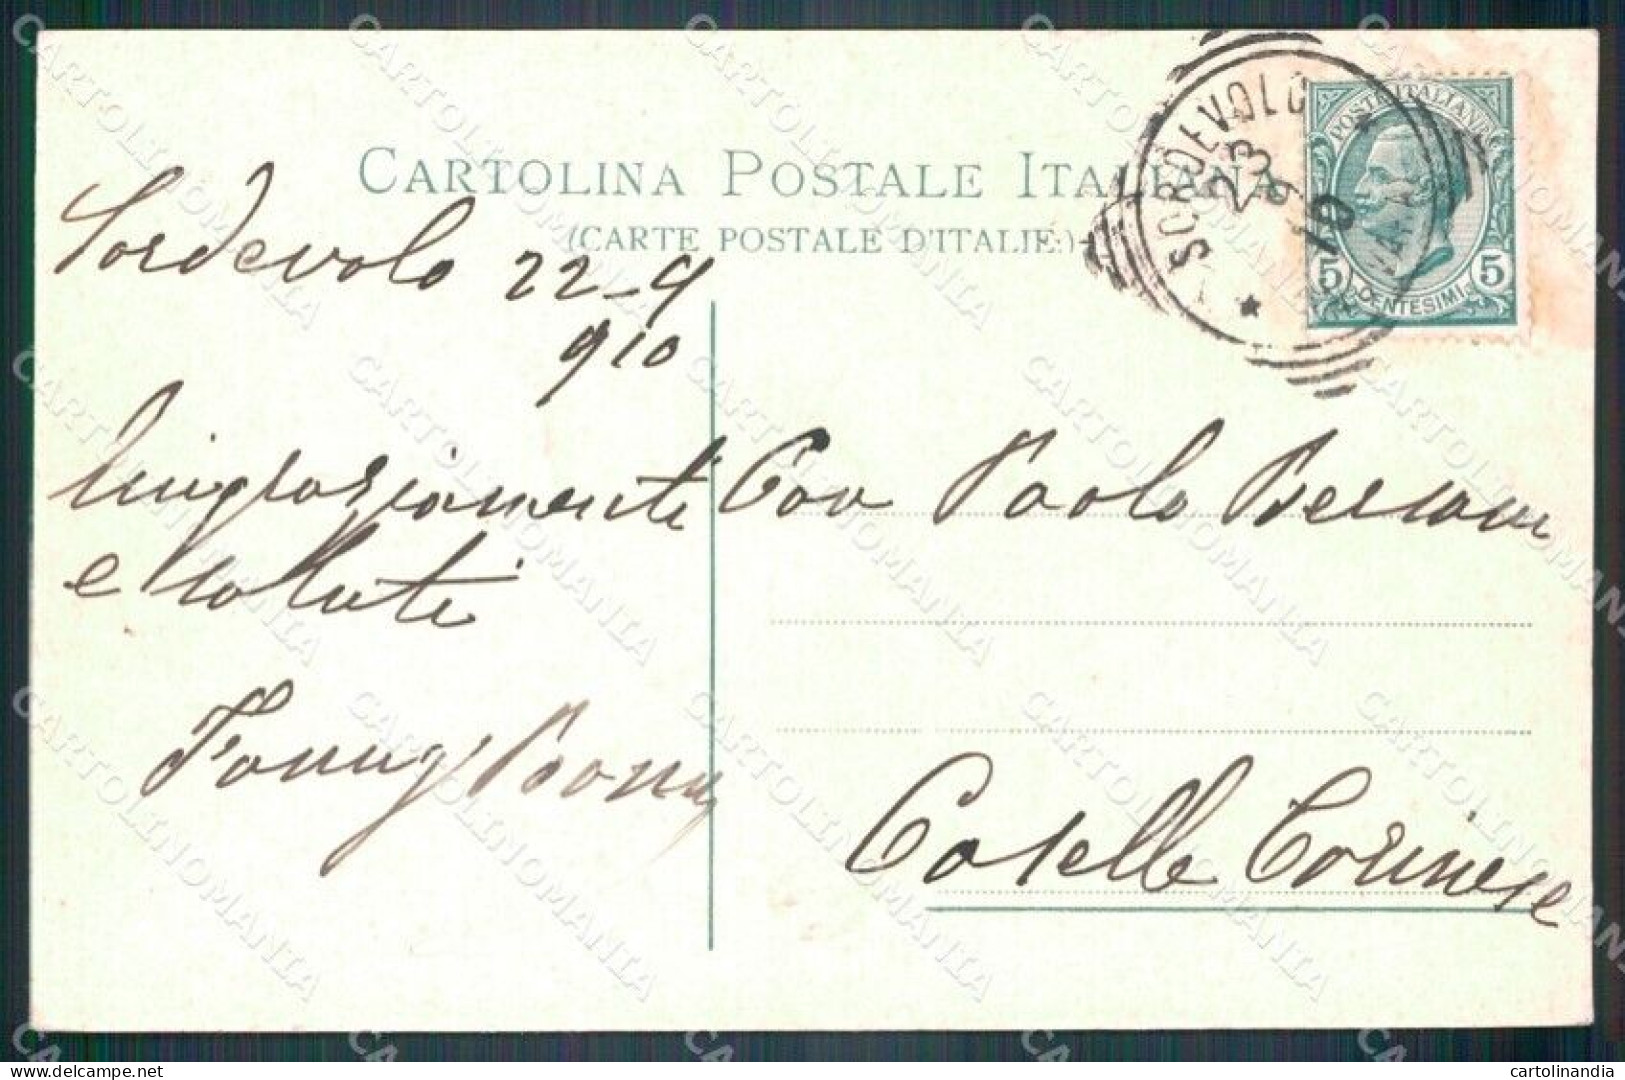 CARTOLINA POSTALE ITALIANA
(CARTE POSTALE D'ITALIE)
SORDEVOLO
23 9 10
POSTE ITALIANE
5 CENTESIMI 5
Sordevolo 22-9
910
Ringraziamenti
e saluti
Fanny
Cav Paolo
Caselle Torinese
CARTOLINOMANIA
cartolinandia